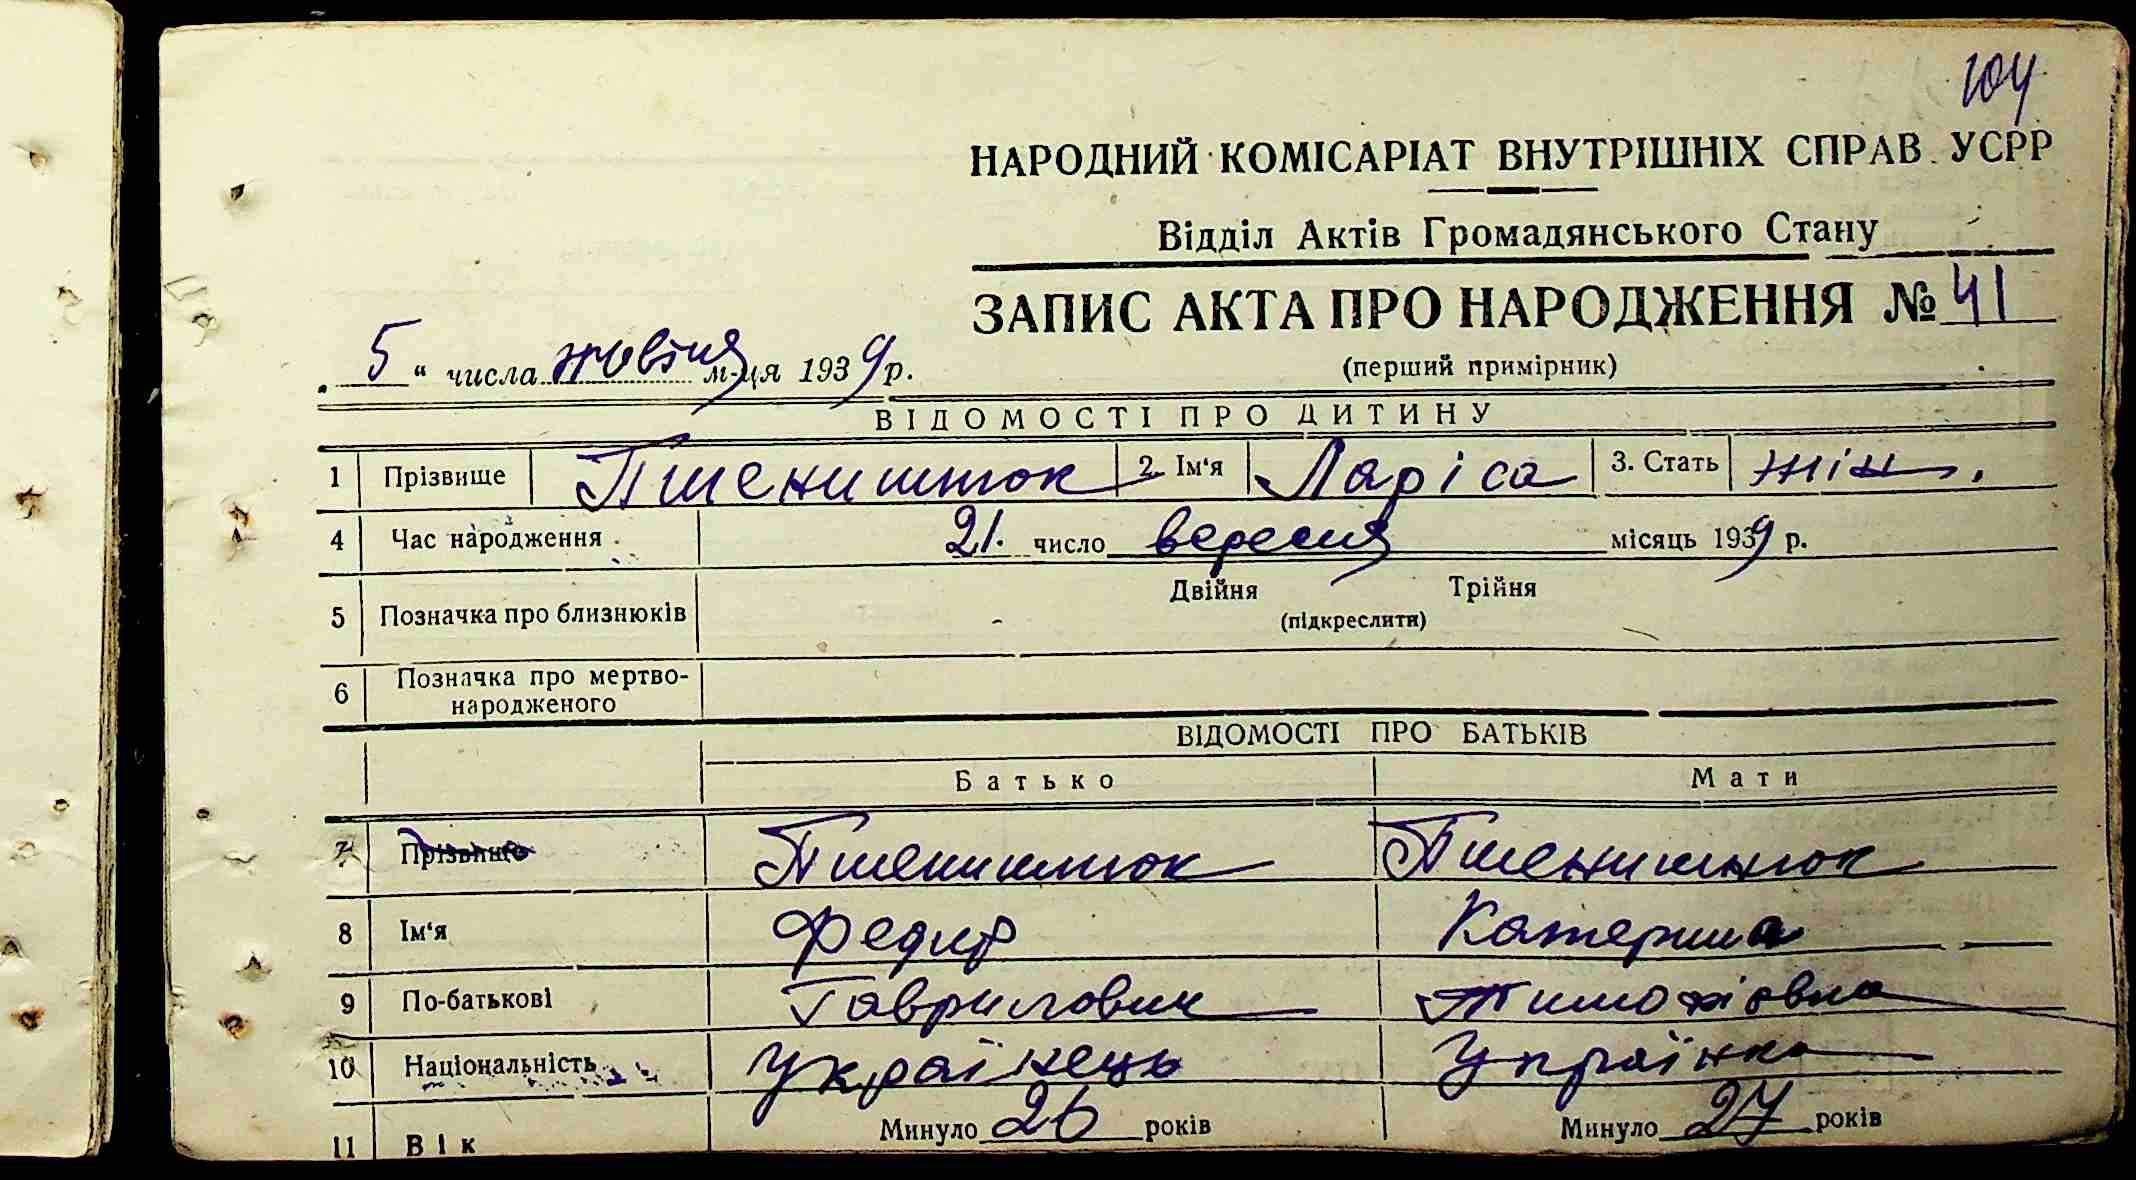 104
НАРОДНИЙ КОМІСАРІАТ ВНУТРІШНІХ СПРАВ УСРР
Відділ Актів Громадянського Стану
ЗАПИС АКТА ПРО НАРОДЖЕННЯ № 41
„5“ числа жовтня м-ця 1939 р.
(перший примірник)
ВІДОМОСТІ ПРО ДИТИНУ
1 Прізвище Пшенишнюк 2. Ім'я Ларіса 3. Стать жін.
4 Час народження 21. число вересня місяць 1939 р.
5 Позначка про близнюків Двійня Трійня
(підкреслити)
6 Позначка про мертво-
народженого
ВІДОМОСТІ ПРО БАТЬКІВ
Батько Мати
7 Прізвище Пшенишнюк Пшенишнюк
8 Ім'я Федир Катерина
9 По-батькові Гаврилович Тимофіовна
10 Національність Українець Українка
11 Вік Минуло 26 років Минуло 27 років